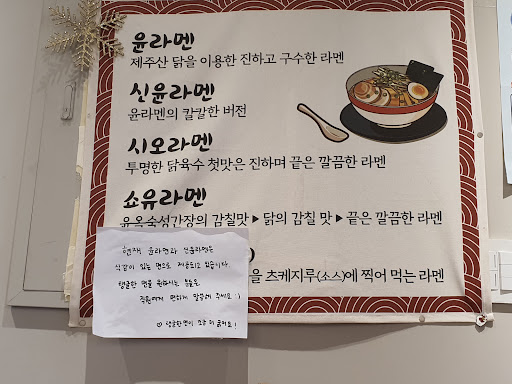 윤라멘
제주산 닭을 이용한 진하고 구수한 라멘
신윤라멘
윤라멘의 칼칼한 버전
시오라멘
투명한 닭육수 첫맛은 진하며 끝은 깔끔한 라멘
쇼유라멘
윤옥숙성간장의 감칠맛▶닭의 감칠 맛▶끝은 깔끔한 라멘
을 츠케지루(소스)에 찍어 먹는 라멘
현재 윤라멘과 신윤라멘는
식감이 있는 면으로 제공되고 있습니다.
탱글한 면을 원하시는 분들은
직원에게 편하게 말씀해 주세요!
탱글한면이 조금 더 굵어요!